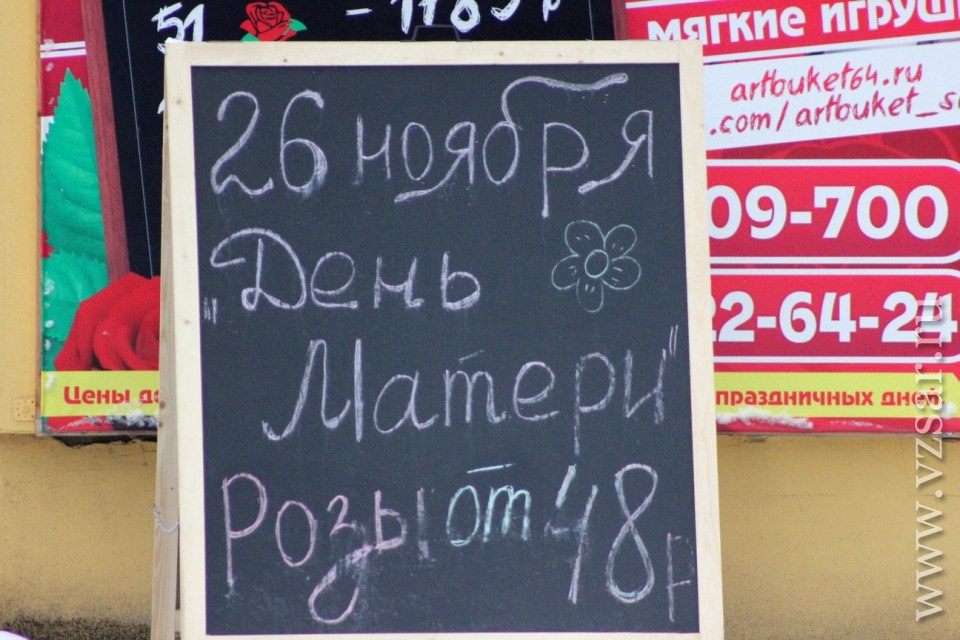 51
МЯГКИЕ
artbuket64.ru
.com/artbuket_s
09-700
22-64-24
Цены
праздничных
26 ноября
"День
Матери"
Розы от 48 р
www.vzsar.ru